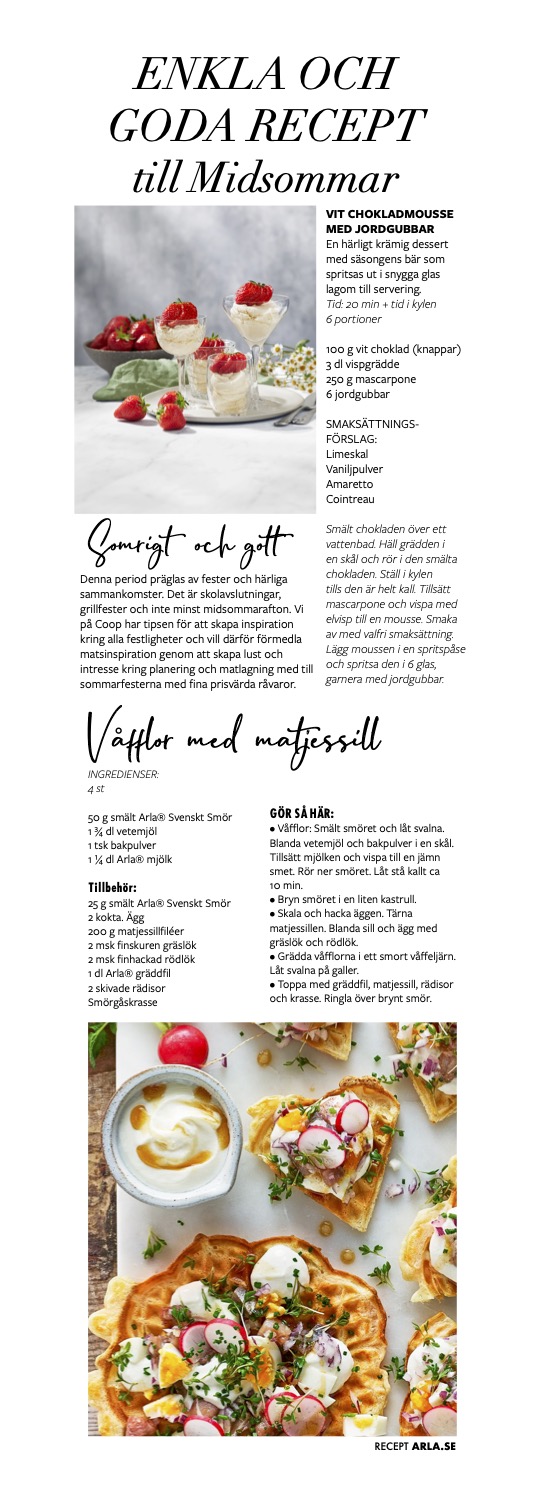 ENKLA OCH
GODA RECEPT
till Midsommar
VIT CHOKLADMOUSSE
MED JORDGUBBAR
En härligt krämig dessert
med säsongens bär som
spritsas ut i snygga glas
lagom till servering.
Tid: 20 min + tid i kylen
6 portioner
100 g vit choklad (knappar)
3 dl vispgrädde
250 g mascarpone
6 jordgubbar
SMAKSÄTTNINGS-
FÖRSLAG:
Limeskal
Vaniljpulver
Amaretto
Cointreau
Smält chokladen över ett
vattenbad. Häll grädden i
en skål och rör i den smälta
chokladen. Ställ i kylen
tills den är helt kall. Tillsätt
mascarpone och vispa med
elvisp till en mousse. Smaka
av med valfri smaksättning.
Lägg moussen i en spritspåse
och spritsa den i 6 glas,
garnera med jordgubbar.
Somrigt och gott
Denna period präglas av fester och härliga
sammankomster. Det är skolavslutningar,
grillfester och inte minst midsommarafton. Vi
på Coop har tipsen för att skapa inspiration
kring alla festligheter och vill därför förmedla
matsinspiration genom att skapa lust och
intresse kring planering och matlagning med till
sommarfesterna med fina prisvärda råvaror.
Våfflor med matjessill
INGREDIENSER:
4 st
50 g smält Arla® Svenskt Smör
1 ¾ dl vetemjöl
1 tsk bakpulver
1 ¼ dl Arla® mjölk
Tillbehör:
25 g smält Arla® Svenskt Smör
2 kokta. Ägg
200 g matjessillfiléer
2 msk finskuren gräslök
2 msk finhackad rödlök
1 dl Arla® gräddfil
2 skivade rädisor
Smörgåskrasse
GÖR SÅ HÄR:
● Våfflor: Smält smöret och låt svalna.
Blanda vetemjöl och bakpulver i en skål.
Tillsätt mjölken och vispa till en jämn
smet. Rör ner smöret. Låt stå kallt ca
10 min.
● Bryn smöret i en liten kastrull.
● Skala och hacka äggen. Tärna
matjessillen. Blanda sill och ägg med
gräslök och rödlök.
● Grädda våfflorna i ett smort våffeljärn.
Låt svalna på galler.
● Toppa med gräddfil, matjessill, rädisor
och krasse. Ringla över brynt smör.
RECEPT ARLA.SE